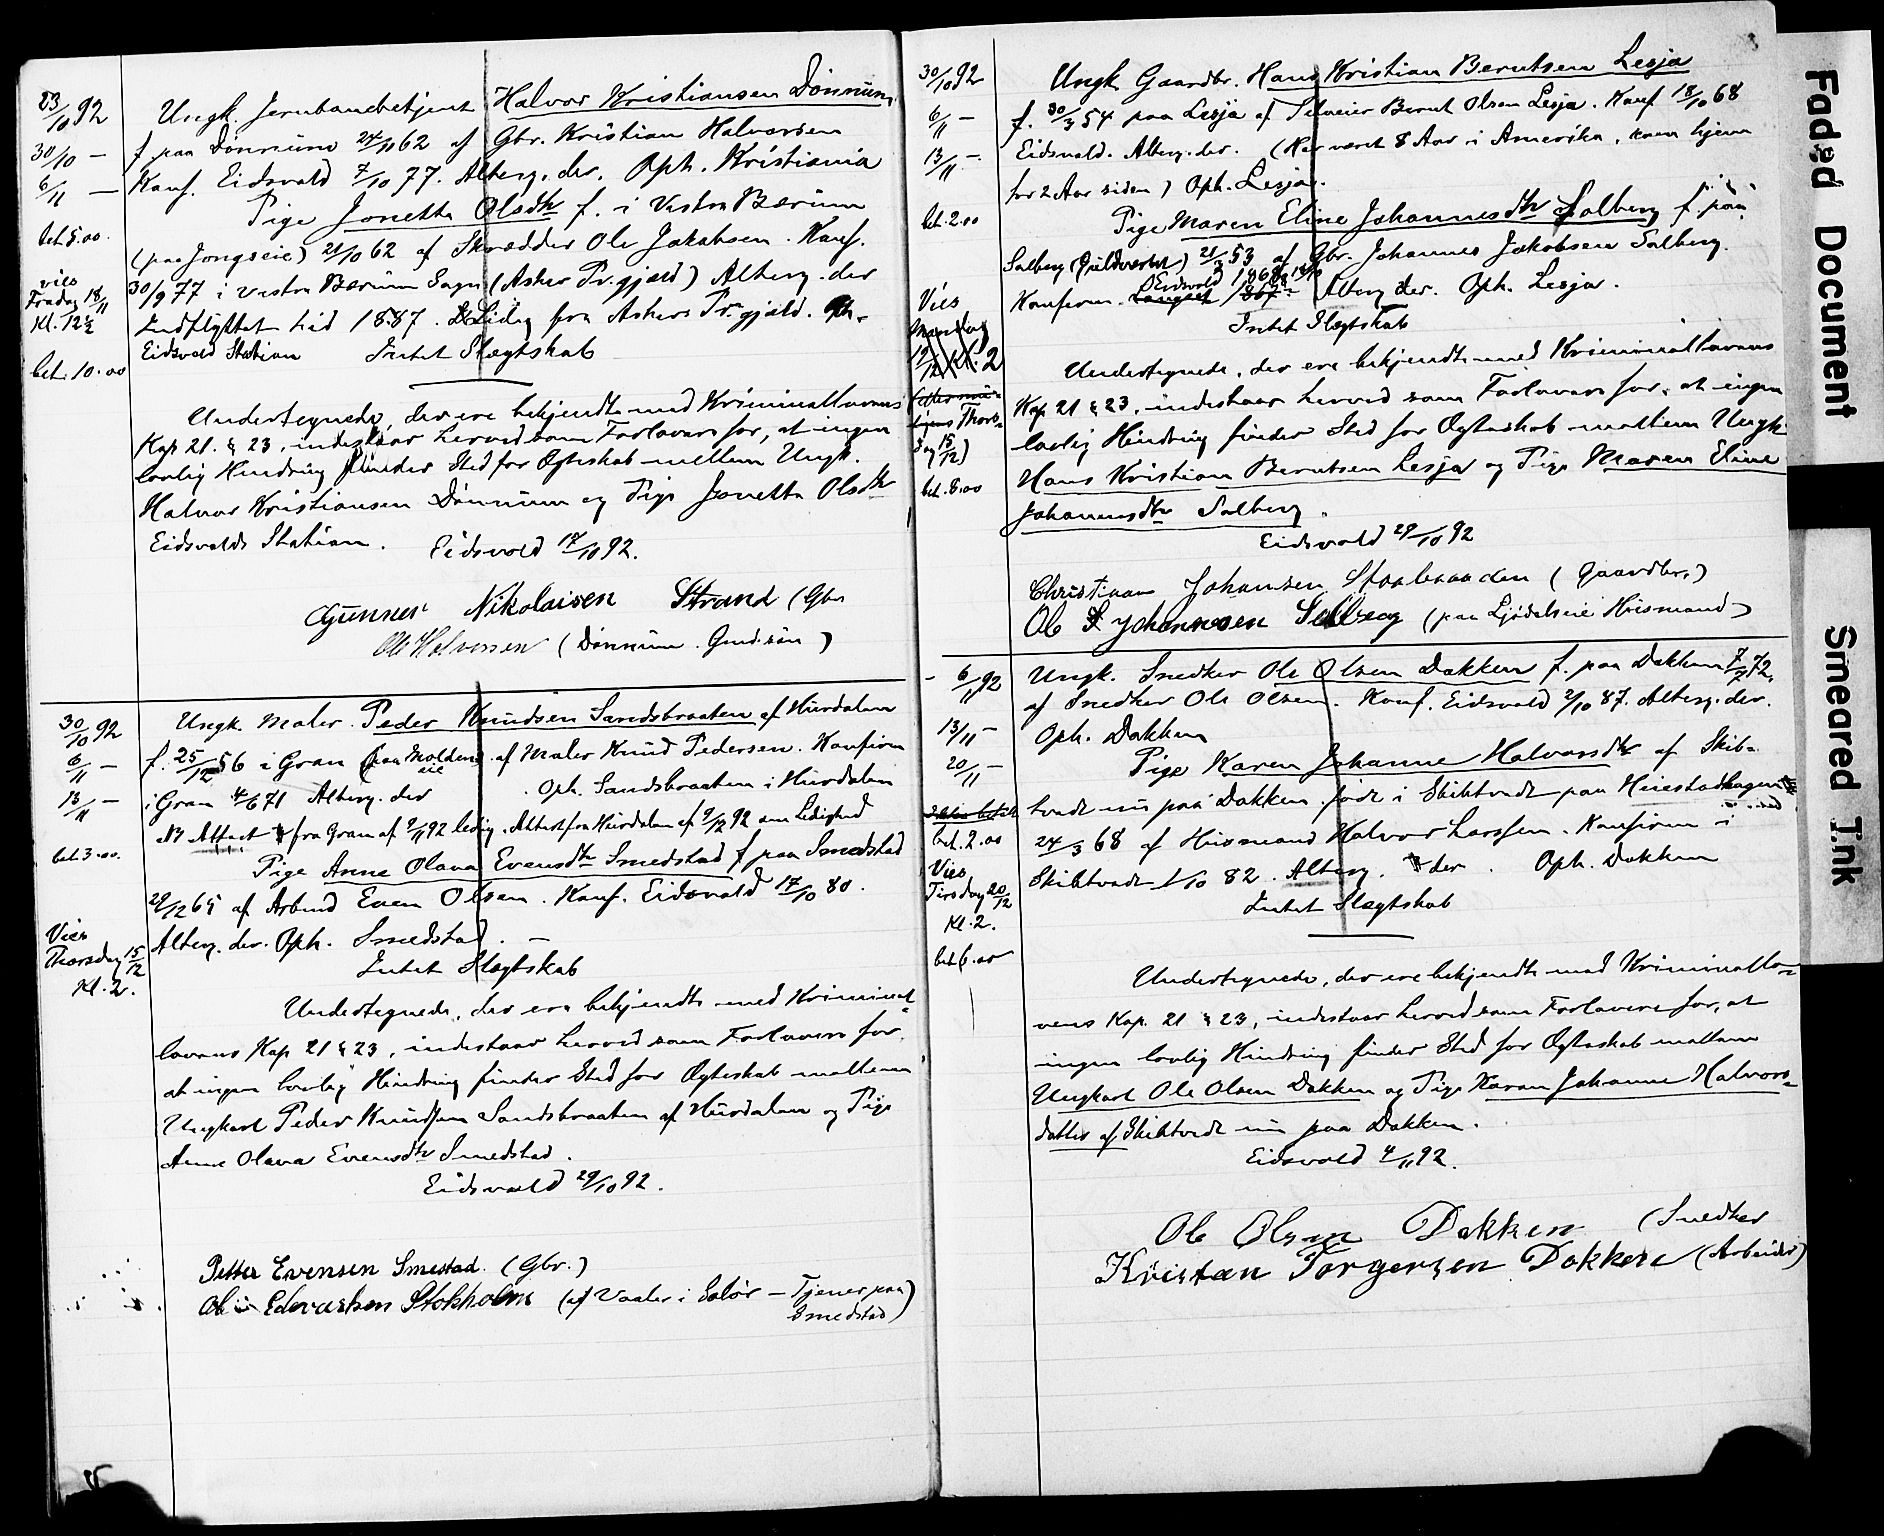 23/10 92
30/10 —
6/11 —
bet 5.00.
vies
Fredag 18/11
Kl. 12 1/2
bet. 10.00
Ungk. Jernbanebetjent Halvor Kristiansen Dønnum
f paa Dønnum 24/11 62 af Gbr. Kristian Halvorsen
Konf. Eidsvold 7/10 77. Alterg. der. Oph. Kristiania
Pige Jonette Olsdtr f. i Vestre Bærum
(paa Jongseie) 21/10 62 af Skrædder Ole Jakobsen. Konf.
30/9 77 i Vestre Bærum Sogn (Asker Pr.gjæld) Alterg. der
Indflyttet hid 1887. Ledig fra Askers Pr.gjæld. Oph.
Eidsvold Station Intet Slægtskab
Undertegnede, der ere bekjendte med Kriminallovens
Kap 21. § 23, indestaar herved som Forlovere for, at ingen
lovlig Hindring finder Sted for Ægteskab mellem Ungk.
Halvor Kristiansen Dønnum og Pige Jonette Olsdtr
Eidsvolds Station. Eidsvold 17/10 92.
Gunner Nikolaisen Strand (Gbr
Ole Halvorsen (Dønnum. Grdsøn)
30/10 92
6/11 —
13/11 —
bet. 3.00.
Vies
Thorsdag 15/12
Kl. 2.
Ungk. Maler. Peder Knudsen Sandsbraaten af Hurdalen
f. 25/12 56 i Gran (paa Moldeneie af Maler Knud Pedersen. Konfirm
i Gran 4/6 71 Alterg. der . Oph. Sandsbraaten i Hurdalen
NB Attest fra Gran af 9/11 92 ledig. Attest fra Hurdalen af 9/12 92 om Ledighed
Pige Anne Olava Evensdtr Smedstad f paa Smedstad
29/12 65 af Arbmd Even Olsen. Konf. Eidsvold 17/10 80.
Alterg. der. Oph. Smedstad. —
Intet Slægtskab
Undertegnede, der ere bekjendte med Kriminal
lovens Kap 21 § 23, indestaar herved som Forlovere for,
at ingen lovlig Hindring finder Sted for Ægteskab mellem
Ungkarl Peder Knudsen Sandsbraaten af Hurdalen og Pige
Anne Olava Evensdtr Smedstad.
Eidsvold 29/10 92.
Petter Evensen Smestad. (Gbr.)
Ole Edvarsen Stokholm (af Vaaler i Solør — Tjener paa
Smedstad)
30/10 92
6/11 —
13/11 —.
bet. 2.00
Vies
Mandag
19/12 Kl. 2
15/12)
bet. 8.00
Ungk Gaardbr. Hans Kristian Berntsen Lesja
f. 30/3 54 paa Lesja af Selveier Bernt Olsen Lesja. Konf 18/10 68
Eidsvold. Alterg. der. (Har været 8 Aar i Amerika, kom hjem
for 2 Aar siden) Oph. Lesja.
Pige Maren Eline Johannesdtr Solberg f paa
Solberg (Guldværket) 21/3 53 af Gbr. Johannes Jakobsen Solberg.
Eidsvold 1868
Konfirm. Langset 1867. Alterg der. Oph. Lesja.
Intet Slægtskab
Undertegnede, der ere bekjendte med Kriminallovens
Kap 21 § 23, indestaar herved som Forlovere for, at ingen
lovlig Hindring finder Sted for Ægteskab mellem Ungk
Hans Kristian Berntsen Lesja og Pige Maren Eline
Johannesdtr Solberg.
Eidsvold 29/10 92
Christian Johansen Staxleraaden (Gaardbr.)
Ole Johannesen Solberg (paa Ljødalseie Husmand)
- 6/11 92
13/11 —
20/11 —
bet. 2.00
Vies
Tirsdag 20/12
Kl. 2.
bet 6.00
Ungk. Snedker Ole Olsen Dokken f. paa Dokken 7/11 72,
af Snedker Ole Olsen. Konf. Eidsvold 2/10 87. Alterg. der.
Oph. Dokken
Pige Karen Johanne Halvorsdtr af Skib-
tvedt nu paa Dokken. født i Skibtvedt paa Heiestadhagen
24/3 68 af Husmand Halvor Larssen. Konfirm i
Skibtvedt 1/10 82. Alterg. der. Oph. Dokken
Intet Slægtskab
Undertegnede, der ere bekjendte med Kriminallo-
vens Kap. 21 § 23, indestaar herved som Forlovere for, at
ingen lovlig Hindring finder Sted for Ægteskab mellem
Ungkarl Ole Olsen Dokken og Pige Karen Johanne Halvors-
datter af Skibtvedt nu paa Dokken.
Eidsvold 4/11 92.
Ole Olsen Dokken (Snedker
Kristan Torgersen Dokken (Arbeider)
Faded Document
Smeared Ink